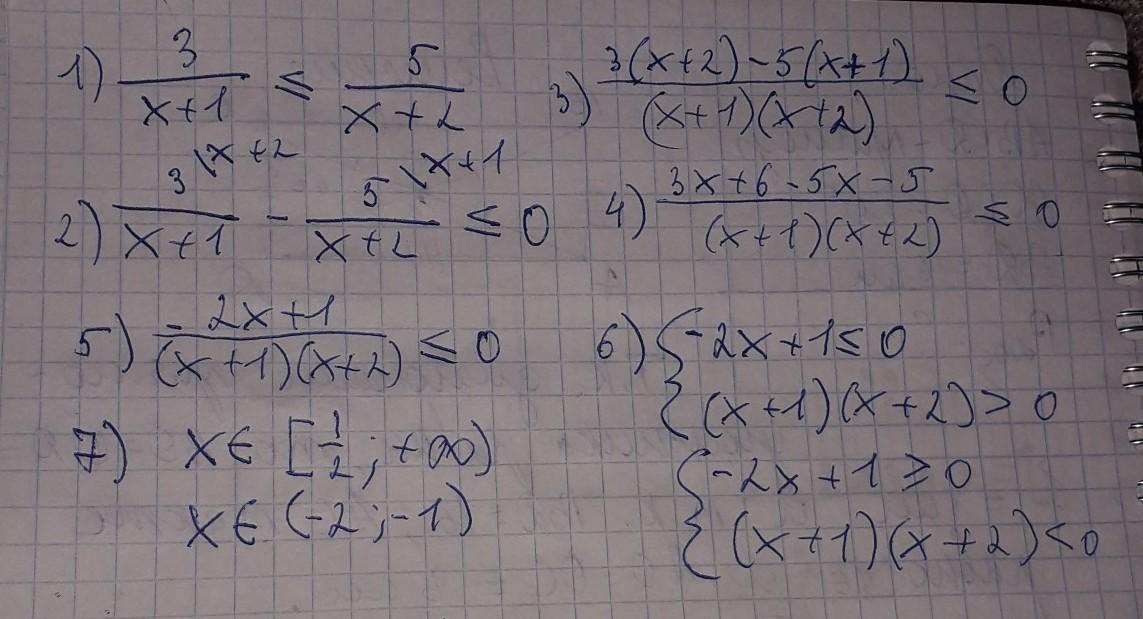 1) 3/(x+1) ≤ 5/(x+2)
2) 3\x+2/(x+1) - 5\x+1/(x+2) ≤ 0
3) (3(x+2)-5(x+1))/((x+1)(x+2)) ≤ 0
4) (3x+6-5x-5)/((x+1)(x+2)) ≤ 0
5) (-2x+1)/((x+1)(x+2)) ≤ 0
6) { -2x+1≤0
{ (x+1)(x+2)>0
{ -2x+1≥0
{ (x+1)(x+2)<0
7) x∈ [1/2;+∞)
x∈ (-2;-1)